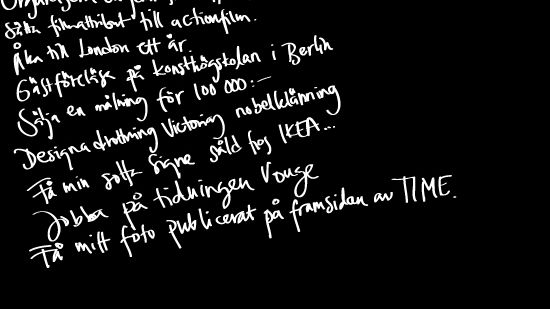 Sälja filmattribut till actionfilm.
Åka till London ett år.
Gästföreläsa på konsthögskolan i Berlin
Sälja en målning för 100 000:-
Designa drottning Victorias nobelklänning
Få min soffa Signe såld hos IKEA...
Jobba på tidningen Vouge
Få mitt foto publicerat på framsidan av TIME.